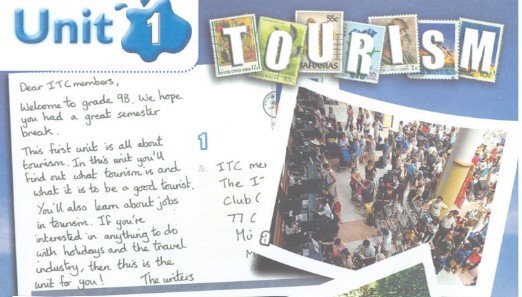 Unit 1
TOURISM
Dear ITC members,
Welcome to grade 9B. We hope
you had a great semester
break.
This first unit is all about
tourism. In this unit you'll
find out what tourism is and
what it is to be a good tourist.
You'll also learn about jobs
in tourism. If you're
interested in anything to do
with holidays and the travel
industry, then this is the
unit for you!
The writers
1
To.
ITC
The
Club
77
55c
BAHAMAS